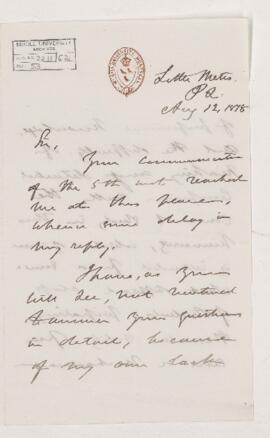 McGILL UNIVERSITY
ARCHIVES
Little Metis
P.Q.
Aug 12, 1878
Sir,
Your communication
of the 5th inst reached
me at this place,
whence some delay in
my reply.
I have, as you
will see, not ventured
to answer your questions
in detail, because
of my own lack